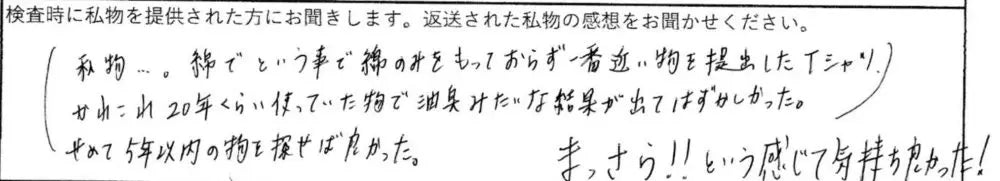 検査時に私物を提供された方にお聞きします。返送された私物の感想をお聞かせください。
私物…。綿でという事で綿のみをもっておらず一番近い物を提出したTシャツ。
かれこれ20年くらい使っていた物で油臭みたいな結果が出てはずかしかった。
せめて5年以内の物を探せば良かった。
まっさら!!という感じで気持ち良かった!